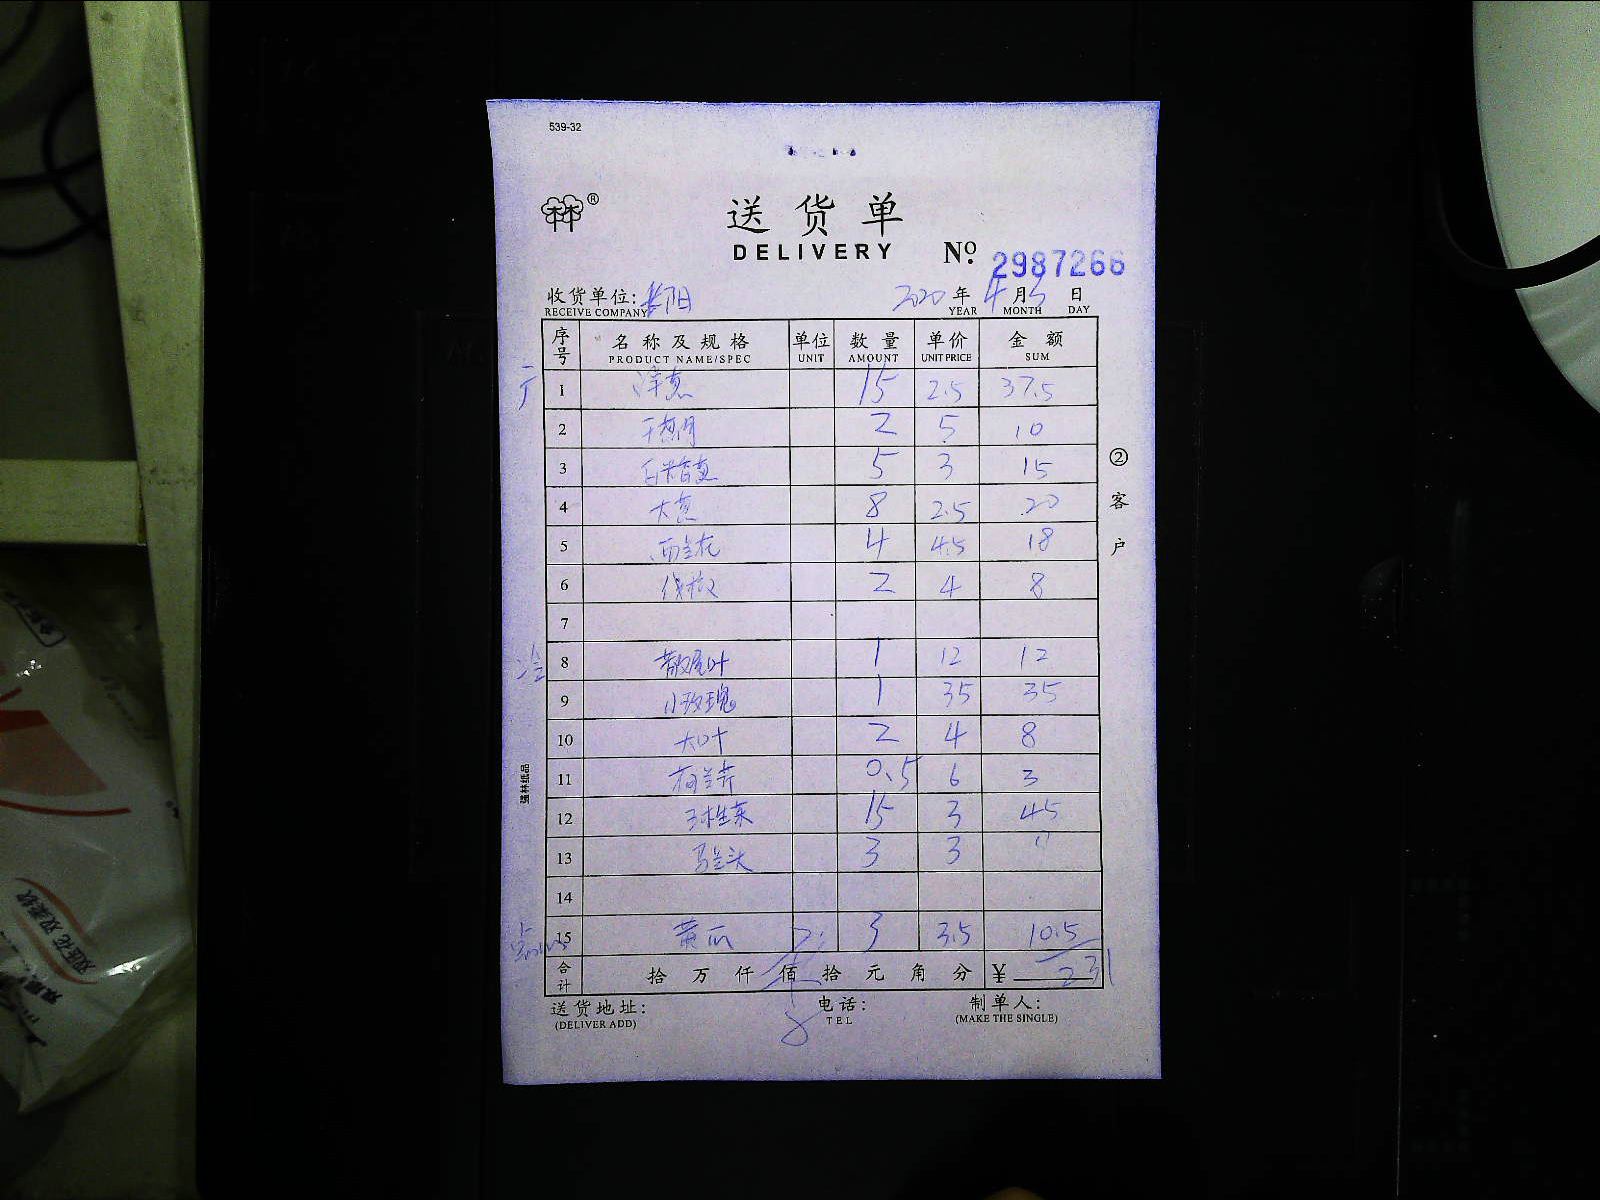 539-32
送货单
DELIVERY No. 2987266
收货单位: 长阳 2020年4月3日
RECEIVE COMPANY YEAR MONTH DAY
序号 名称及规格 单位 数量 单价 金额
PRODUCT NAME/SPEC UNIT AMOUNT UNIT PRICE SUM
1 洋葱 15 2.5 37.5
2 2 5 10
3 5 3 15
4 大葱 8 2.5 20
5 西兰花 4 4.5 18
6 线椒 2 4 8
7
冷 8 散尾叶 1 12 12
9 小玫瑰 1 35 35
10 大叶 2 4 8
11 荷兰芹 0.5 6 3
12 15 3 45
13 马兰头 3 3 "
14
15 黄瓜 3 3.5 10.5
合计 拾万仟佰拾元角分 ¥ 231
送货地址: 电话: 制单人:
(DELIVER ADD) TEL (MAKE THE SINGLE)
②客户
强林纸品
双压花 双柔软